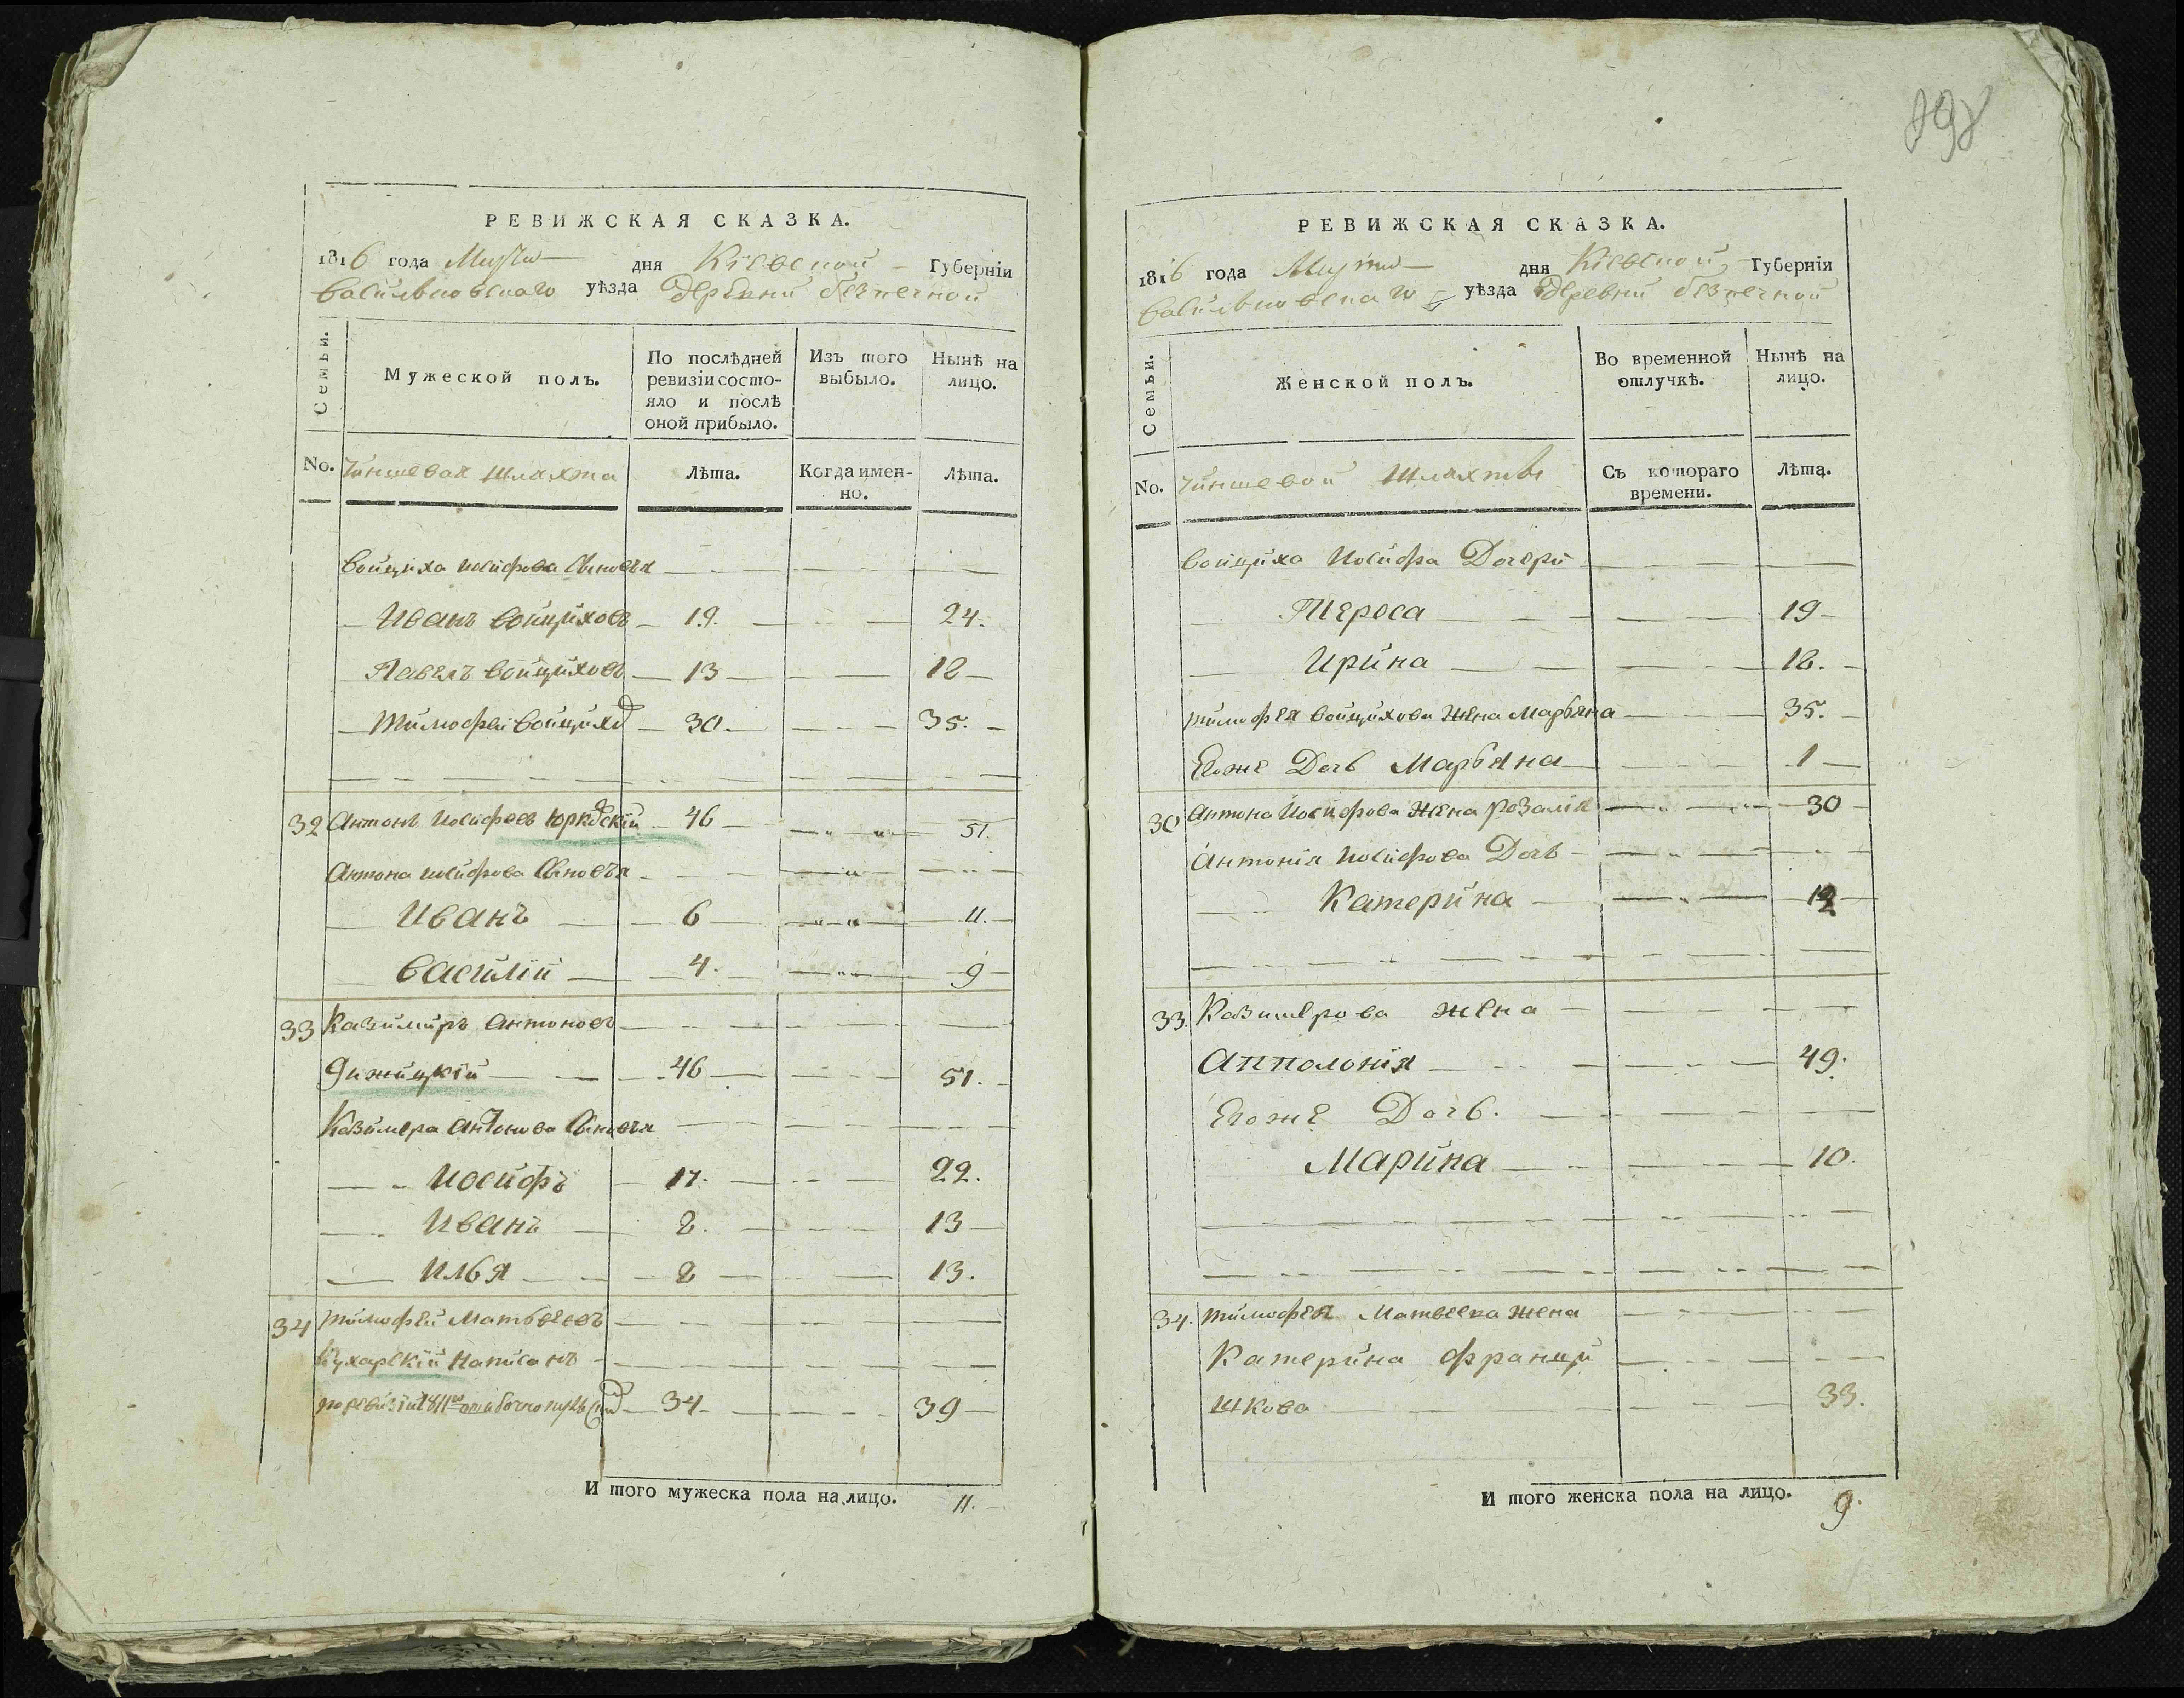 РЕВИЖСКАЯ СКАЗКА.
1816 года Марта дня Кіевской Губерніи
Васильковскаго уѣзда деревни безпечной
Семьи.
Мужеской полъ.
По послѣдней ревизіи состо-
яло и послѣ
оной прибыло.
Изъ того
выбыло.
Нынѣ на
лицо.
No. Чиншевая шляхта
Лѣта.
Когда имен-
но.
Лѣта.
Войциха Иосифова Сыновья
Иванъ Войциховъ 19. 24.
Павелъ Войциховъ 13 18
Тимофей Войцихов 30. 35.
32 Антонъ Иосифовъ Юрковскій 46 51.
Антона Иосифова Сыновья
Иванъ 6 11.
Василій 4. 9
33 Казимиръ Антоновъ
46 51.
Казимера Антонова Сыновья
Иосифъ 17. 22.
Иванъ 8. 13
Илья 8 13.
34 Тимофей Матвеевъ
Кухарскій Написанъ
по ревизіи 1811го 34 39
И того мужеска пола на лицо. 11.
198
РЕВИЖСКАЯ СКАЗКА.
1816 года Марта дня Кіевской Губерніи
Васильковскаго уѣзда деревни безпечной
Семьи.
Женской полъ.
Во временной
отлучкѣ.
Нынѣ на
лицо.
No. Чиншевой Шляхты
Съ котораго
времени.
Лѣта.
Войциха Иосифа Дочери
Тереса 19
Ирина 18.
Тимофея Войцихова Жена Марьяна 35.
Егоже Дочь Марьяна 1
30 Антона Иосифова Жена Розалія 30
Антонія Иосифова Дочь
Катерина 12
33. Казимерова жена
Апполонія 49.
Егоже Дочь.
Марина 10.
34. Тимофея Матвеева Жена
Катерина Франци
шкова 33.
И того женска пола на лицо. 9.